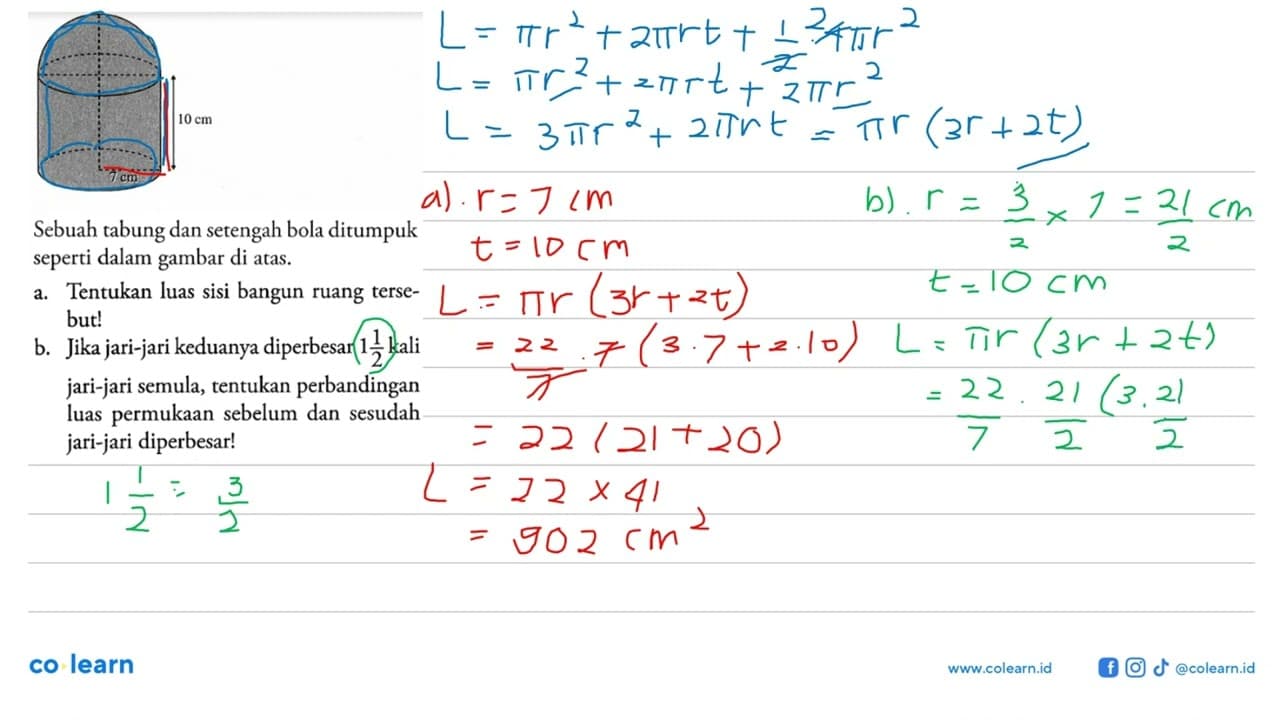 10 cm
7 cm
Sebuah tabung dan setengah bola ditumpuk
seperti dalam gambar di atas.
a. Tentukan luas sisi bangun ruang terse-
but!
b. Jika jari-jari keduanya diperbesar 1 1/2 kali
jari-jari semula, tentukan perbandingan
luas permukaan sebelum dan sesudah
jari-jari diperbesar!
1 1/2 = 3/2
L = πr² + 2πrt + 1/2 · 4πr² 2
L = πr² + 2πrt + 2πr²
L = 3πr² + 2πrt = πr (3r + 2t)
a). r = 7 cm
t = 10 cm
L = πr (3r + 2t)
= 22/7 . 7 (3.7 + 2.10)
= 22 (21 + 20)
L = 22 × 41
= 902 cm²
b). r = 3/2 × 7 = 21/2 cm
t = 10 cm
L = πr (3r + 2t)
= 22/7 . 21/2 (3. 21/2
co learn
www.colearn.id
@colearn.id